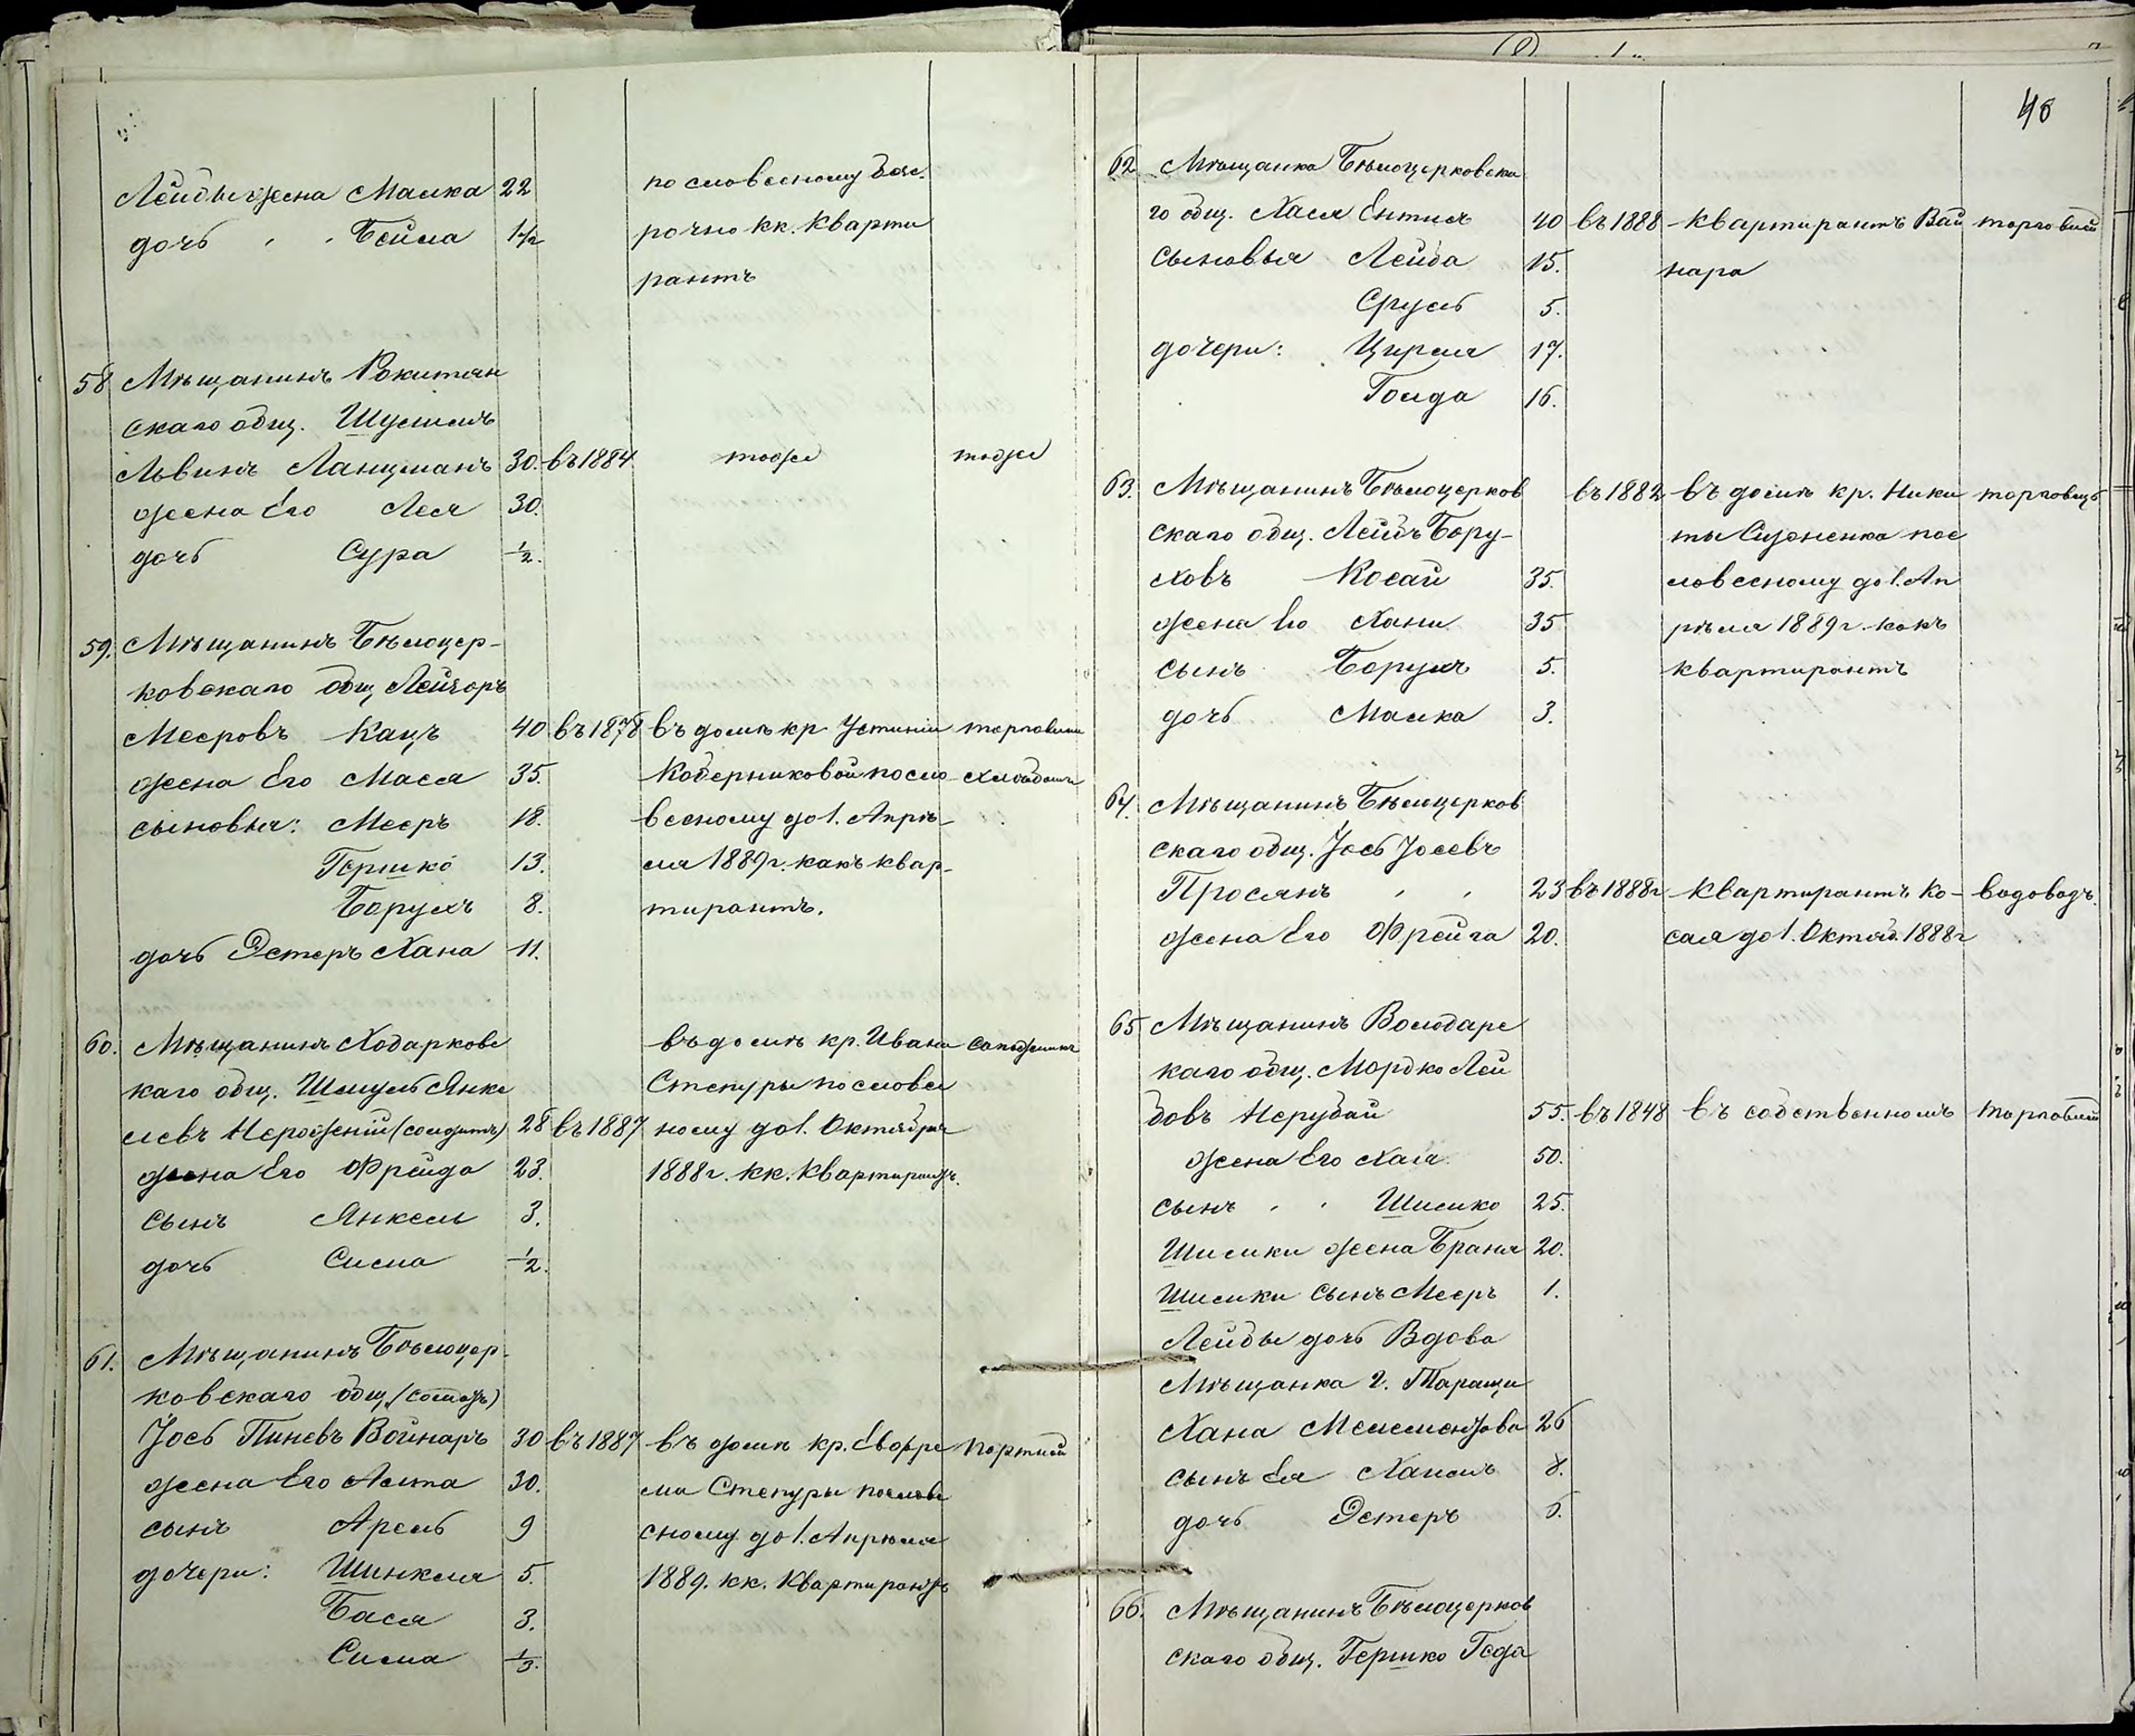 Лейды жена Малка 22 по словесному безс.
дочь " " Бейла 1½ рочно кк. Кварти
рантъ
58 Мѣщанинъ Рокитян
скаго общ. Шулимъ
Львинъ Ланцманъ 30. въ 1884 тоже тоже
жена Его Лея 30.
дочь Сура ½.
59. Мѣщанинъ Бѣлоцер-
ковскаго общ. Лейзоръ
Мееровъ Кацъ 40 въ 1878 въ домѣ кр. Устиніи торговли
жена Его Мася 35. Коберниковой посло-
сыновья: Мееръ 18. весному до 1. Апрѣ-
Гершко 13. ля 1889 г. какъ квар-
Борухъ 8. тирантъ.
дочь Эстеръ Хана 11.
60. Мѣщанинъ Ходорковс въ домѣ кр. Ивана сапожникъ
каго общ. Шмуль Янке Степуры по словес
левъ (солдатъ) 28 въ 1887 ному до 1. Октября
жена Его Фрейда 23. 1888 г. кк. Квартирантъ.
сынъ Янкель 3.
дочь Сима ½.
61. Мѣщанинъ Бѣлоцер-
ковскаго общ. (солдатъ)
Іось Пиневъ Войнаръ 30 въ 1887 въ домѣ кр. Портной
жена Его 30. Степуры послове
сынъ Арель 9 сному до 1. Апрѣля
дочери: Шинкля 5. 1889. кк. Квартирантъ
Бася 3.
Сима ⅓.
48
62. Мѣщанка Бѣлоцерковска
го общ. Хася Ентися 40 въ 1888 Квартирантъ Вай торговлей
сыновья Лейба 15. нара
Сруль 5.
дочери: Цирля 17.
Голда 16.
63. Мѣщанинъ Бѣлоцерков въ 1882 въ домѣ кр. Ники торговецъ
скаго общ. Лейбъ Бору- ты посло
ховъ Косай 35. ловесному до 1. Ап
жена Его Хани 35 рѣля 1889 г. какъ
сынъ Борухъ 5. квартирантъ
дочь Малка 3.
64. Мѣщанинъ Бѣлоцерков
скаго общ. Іось Іосевъ
Просянъ " " 23 въ 1888 г. Квартирантъ Ко- водовозъ.
жена Его Фрейга 20. сая до 1. Октяб. 1888 г
65 Мѣщанинъ Володарс
каго общ. Мордко Лей
бовъ Нерубай 55. въ 1848 въ собственномъ торговлей
жена Его Хая 50.
сынъ " " Шмико 25.
Шмики жена Браня 20.
Шмики сынъ Мееръ 1.
Лейбы дочь Вдова
Мѣщанка г. Таращи
Хана 26
сынъ Ея Хаимъ 8.
дочь Эстеръ 5.
66. Мѣщанинъ Бѣлоцерков
скаго общ. Гершко Геда